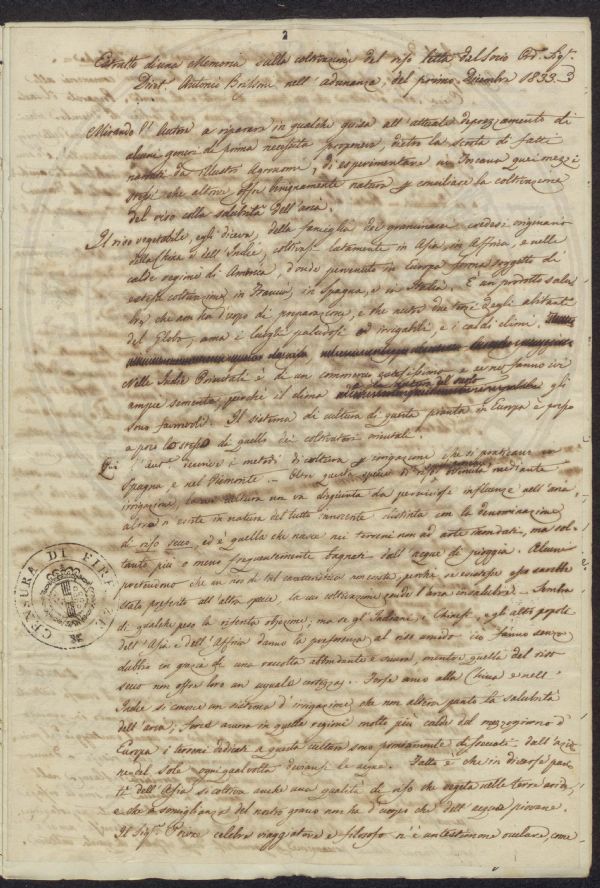 2
Estratto d'una Memoria sulla coltivazione del riso letta dal Socio Ord. Sigr.
Dirt. Antonio Brissoni nell'adunanza del primo Dicembre 1833
Mirando l'Autore a riparare in qualche guisa all'attuale deprezzamento di
alcuni generi di prima necessità propone, dietro la scorta di fatti
narrati da illustri Agronomi, di esperimentare in Toscana quei mezzi
stessi che altrove offre benignamente natura p conciliare la coltivazione
del riso colla salubrità dell'aria.
Il riso vegetabile, egli diceva, della famiglia dei graminacei credesi originario
della China o dell'Indie, coltivasi latamente in Asia, in Affrica, e nelle
calde regioni di America, donde pervenuto in Europa forma soggetto di
estesa coltivazione in Francia, in Spagna, e in Italia. È un prodotto
che non ha d'uopo di preparazione, e che nutre due terzi degli abitanti
del Globo, ama i luoghi paludosi ed irrigabili, e i caldi climi.
Nelle Indie Orientali è di un commercio estesissimo e se ne fanno ivi
ampie sementa, perché il clima e la natura del suolo gli
sono favorevoli. Il sistema di cultura di questa pianta in Europa è presso
a poco lo stesso di quello dei coltivatori orientali.
Qui l'Aut. descrive i metodi di coltura e irrigazione che si praticano in
Spagna e nel Piemonte — Oltre questa specie di riso ottenuto mediante
irrigazione, la cui cultura non va disgiunta da perniciose influenze nell'aria,
altra n'esiste in natura del tutto innocente distinta con la denominazione
di riso secco, ed è quella che nasce nei terreni non ad arte inondati, ma sol-
tanto più o meno frequentemente bagnati dall'acque di pioggia. Alcuni
pretendono che un riso di tal caratteristica non esista, perché se esistesse essa sarebbe
stata preferita all'altra specie, la cui coltivazione rende l'aria insalubre. Sembra
di qualche peso la riferita obiezione; ma se gl'Indiani, i Chinesi, e gli altri popoli
dell'Asia e dell'Affrica danno la preferenza al riso umido ciò fanno senza
dubbio in grazia di una raccolta abbondante e sicura, mentre quella del riso
secco non offre loro un'uguale certezza. Forse anco alla China e nell'
Indie si conosce un sistema d'irrigazione che non altera punto la salubrità
dell'aria, forse ancora in quelle regioni molto più calde del mezzogiorno d'
Europa i terreni dedicati a questa cultura sono prontamente disseccati dall'azio-
ne del sole ogni qual volta
Fatto è che in diverse par-
ti dell'Asia si coltiva anche una qualità di riso che vegeta nelle terre aride,
e che a somiglianza del nostro grano non ha d'uopo che dell'acque piovane.
Il Sigr. Poivre celebre viaggiatore e filosofo n'è un testimone oculare, come
CENSURA DI FIRENZE